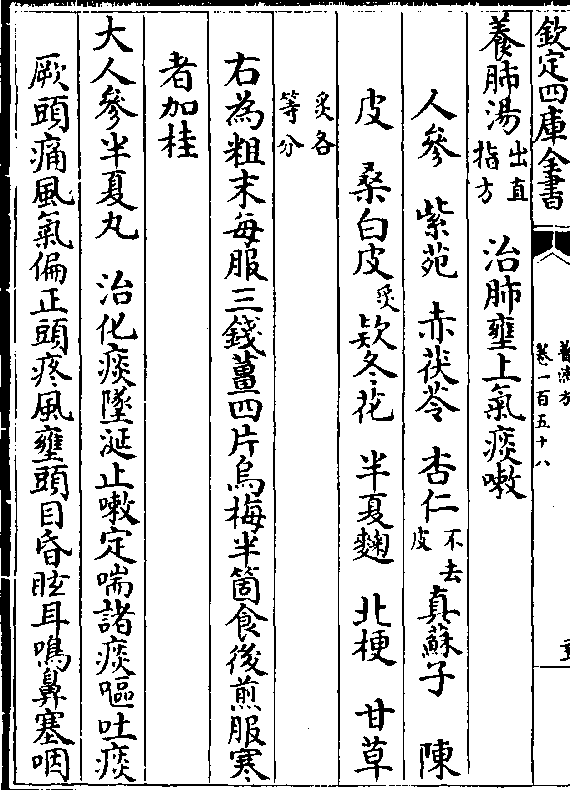 欽定四庫全書
普濟方
卷一百五十八
養肺湯出直指方　治肺壅上氣痰嗽
人參　紫苑　赤茯苓　杏仁不去皮　真蘇子　陳
皮　桑白皮炙　欵冬花　半夏麯　北梗　甘草
炙各等分
右為粗末每服三錢薑四片烏梅半箇食後煎服寒
者加桂
大人參半夏丸　治化痰墜涎止嗽定喘諸痰嘔吐痰
厥頭痛風氣偏正頭疼風壅頭目昏眩耳鳴鼻塞咽